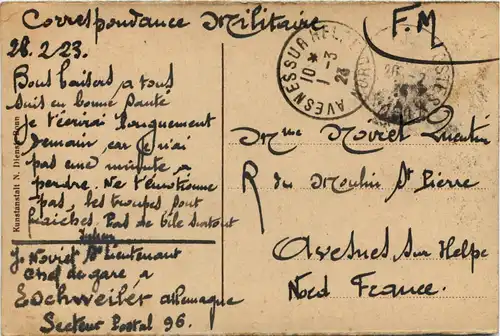 Correspondance Militaire
F. M
28.2.23.
Bons baisers a tous
suis en bonne santé
Je t'écrirai longuement
demain car je n'ai
pas une minute a
perdre. Ne t'émotionne
pas, les troupes sont
fraiches. Pas de bile surtout
J. Noviet Ss Lieutenant
Chef de gare, à
Eschweiler allemagne
Secteur Postal 96.
Kunstanstalt N. Dienst, Bonn
AVESNES SUR HELPE
10 - 3
1 - 3
23
Mme Noviet Quentin
R du Moulin St Pierre
Avesnes sur Helpe
Nord France.